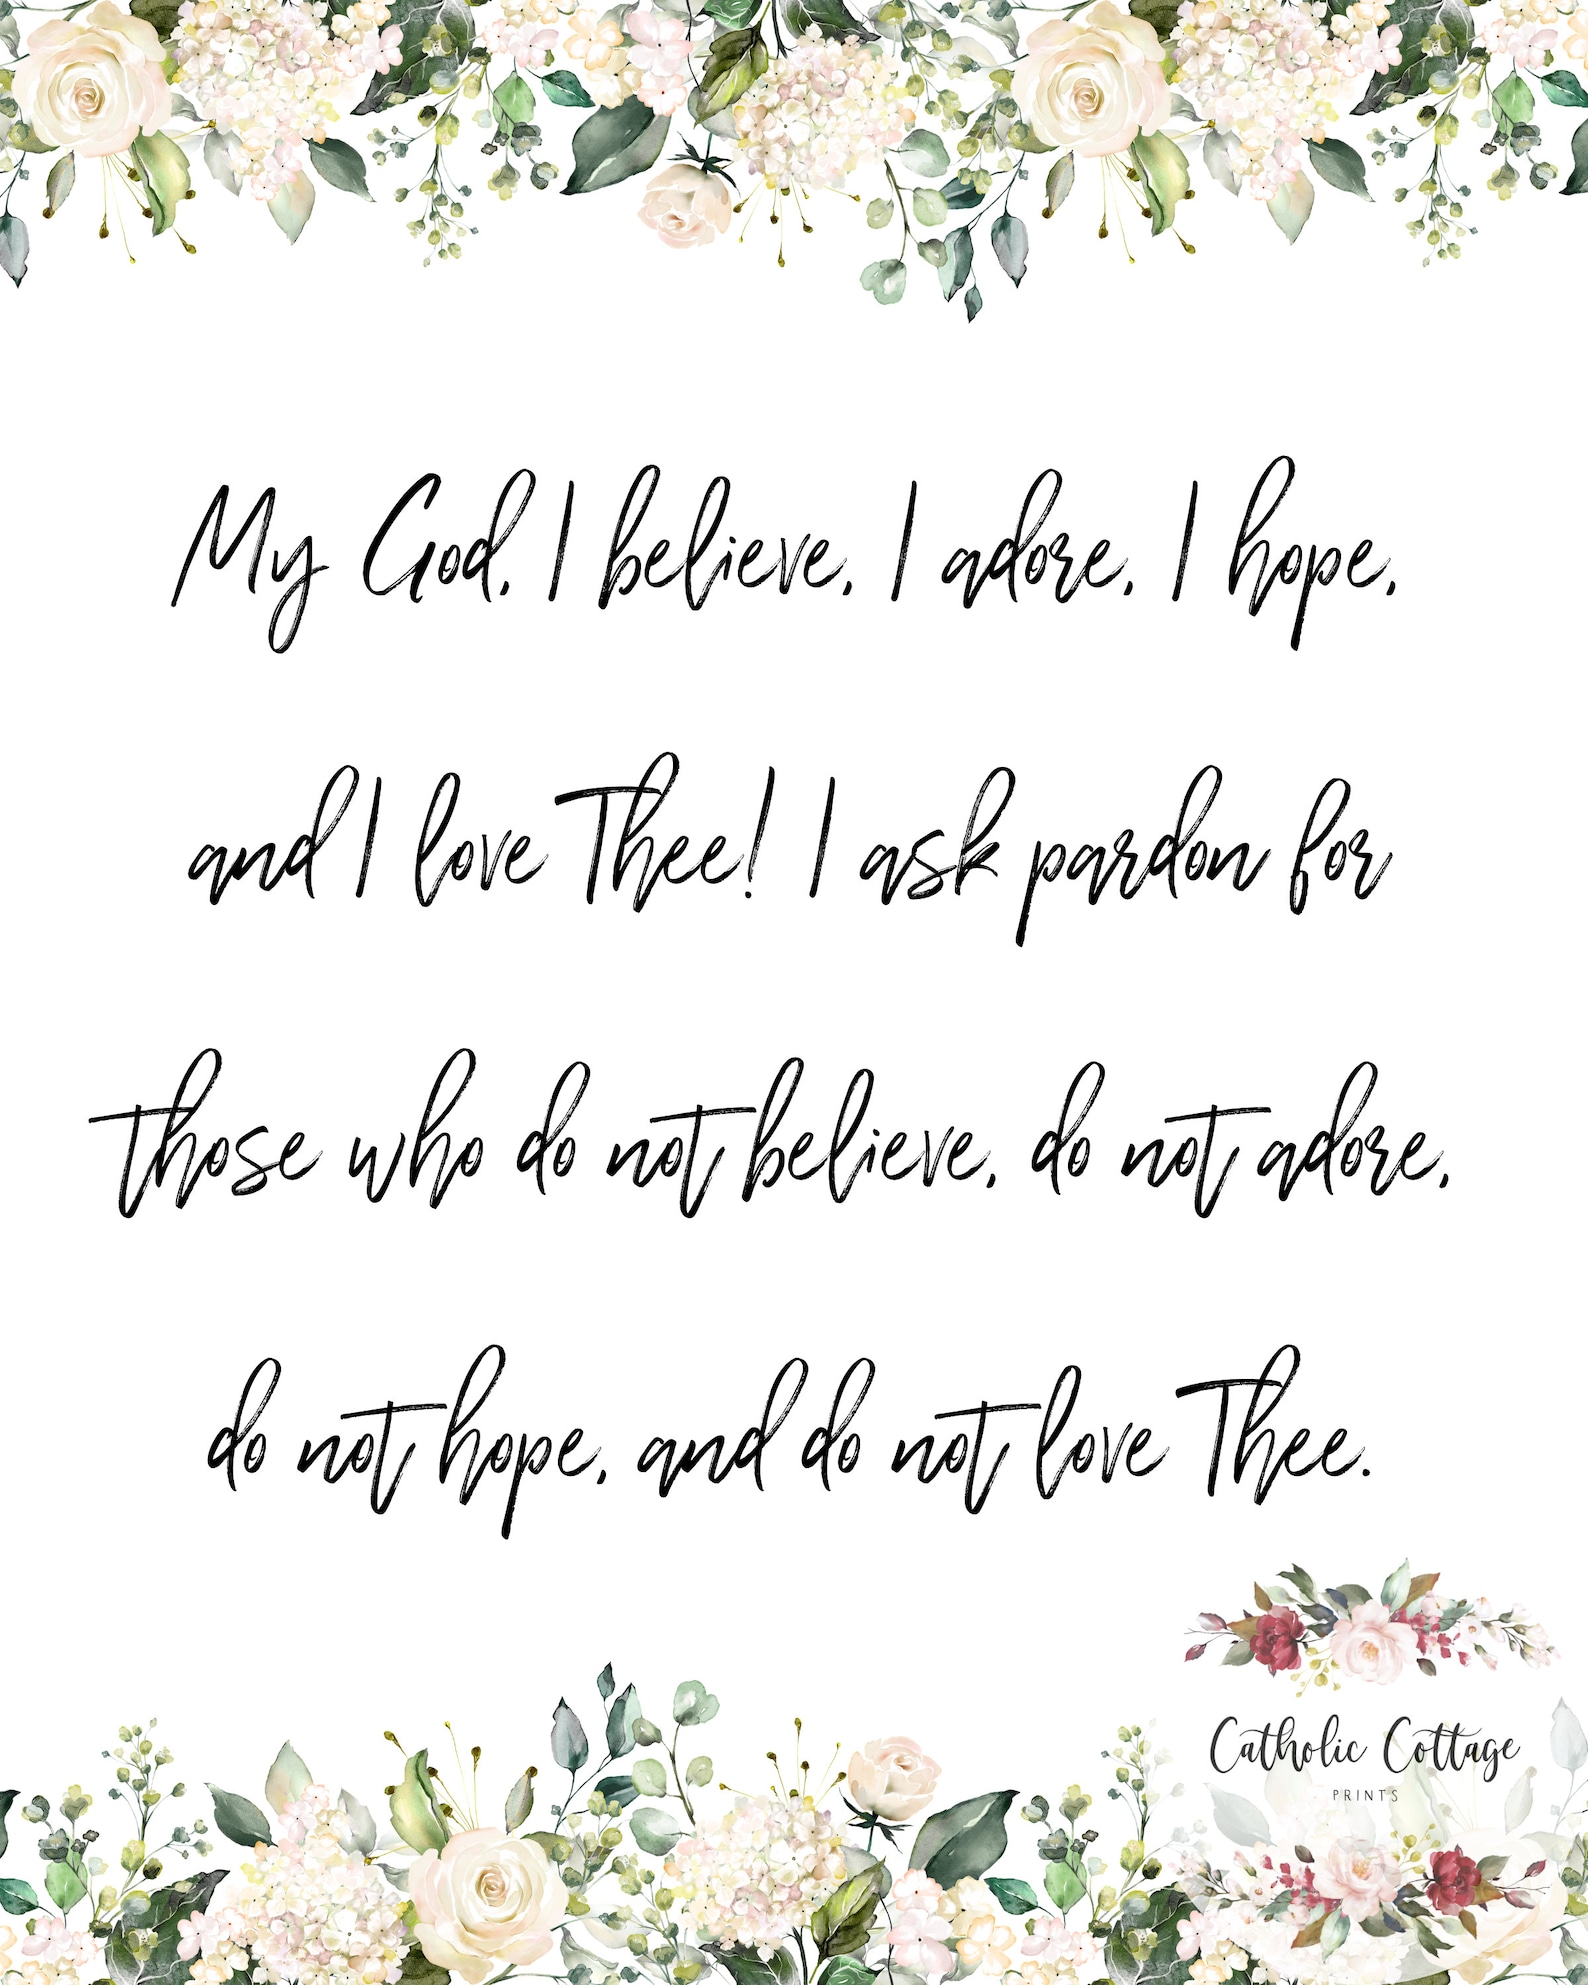 My God, I believe, I adore, I hope,
and I love Thee! I ask pardon for
those who do not believe, do not adore,
do not hope, and do not love Thee.
Catholic Cottage
PRINTS